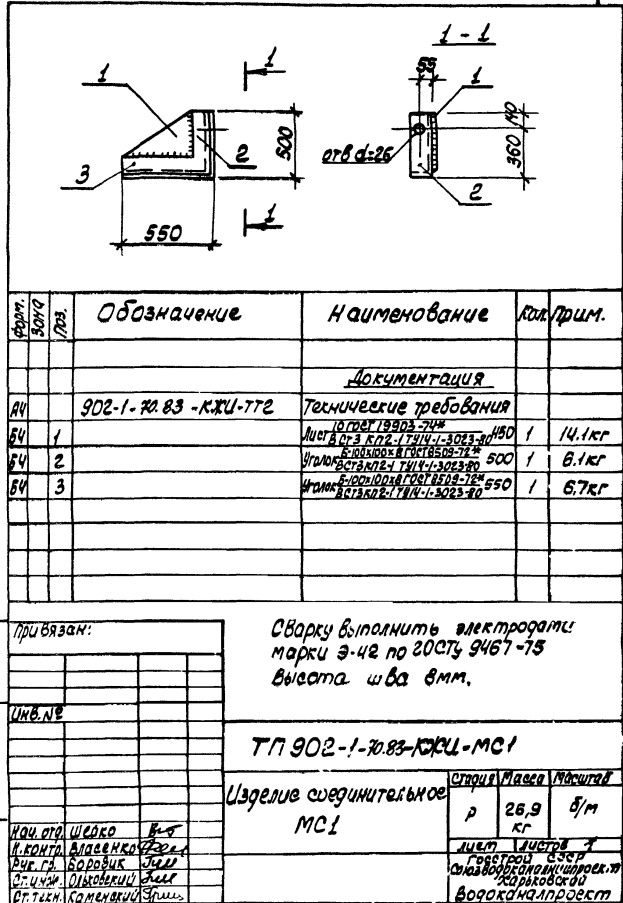 1 - 1
1
1
55
1
2
500
140
отв d=26
360
3
2
1
550
Форм.
Зона
Поз.
Обозначение
Наименование
Кол.
Прим.
Документация
А4 902-1-70.83-КЖИ-ТТ2 Технические требования
Б4 1 Лист 10 ГОСТ 19903-74* / ВСт3 кп2-1 ТУ14-1-3023-80 450 1 14.1кг
Б4 2 Уголок Б-100х100х8 ГОСТ 8509-72* / ВСт3кп2-1 ТУ14-1-3023-80 500 1 6.1кг
Б4 3 Уголок Б-100х100х8 ГОСТ 8509-72* / ВСт3кп2-1 ТУ14-1-3023-80 550 1 6,7кг
Привязан:
Инв. №
Сварку выполнить электродами
марки Э-42 по ГОСТу 9467-75
Высота шва 8мм.
ТП 902-1-70.83-КЖИ-МС1
Изделие соединительное
МС1
Стадия Масса Масштаб
Р 26,9 кг б/м
Лист Листов 1
Госстрой СССР
Союзводоканалниипроект
Харьковский
Водоканалпроект
Нач. отд. Шейко
Н.контр. Власенко
Рук. гр. Боровик
Ст.инж. Ольховский
Ст. техн. Каменский